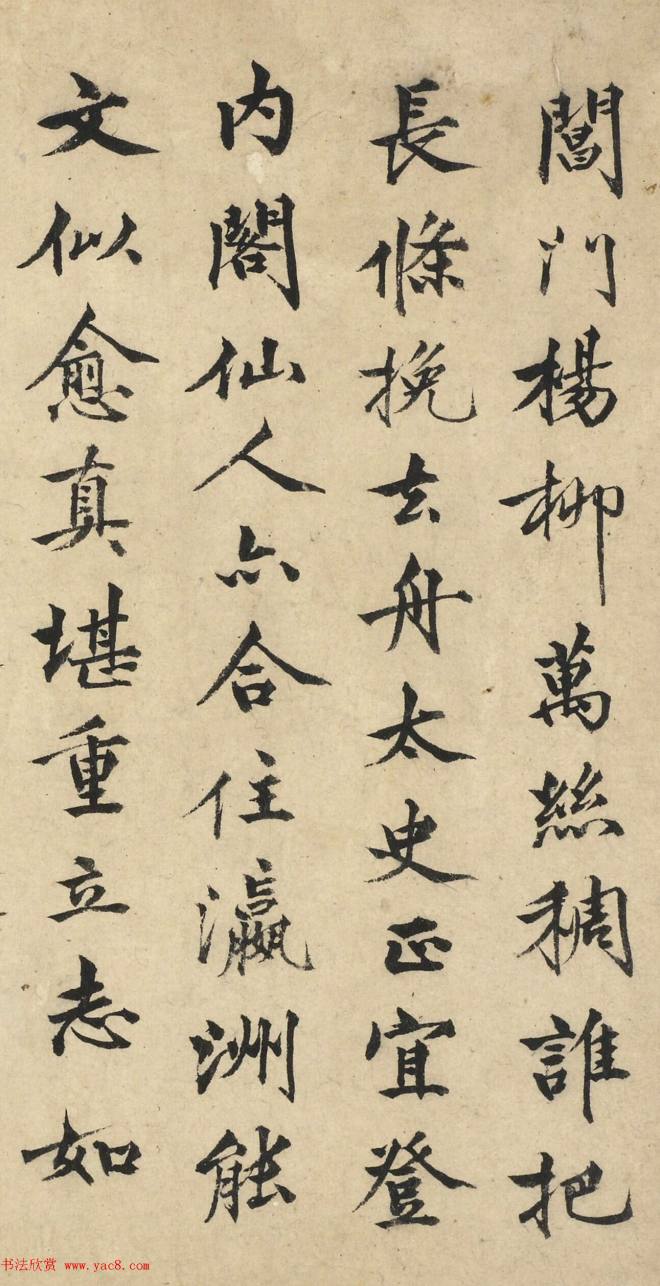 閶門楊柳萬絲稠誰把
長條挽去舟太史正宜登
内閣仙人亦合住瀛洲能
文似愈真堪重立志如
书法欣赏 www.yac8.com